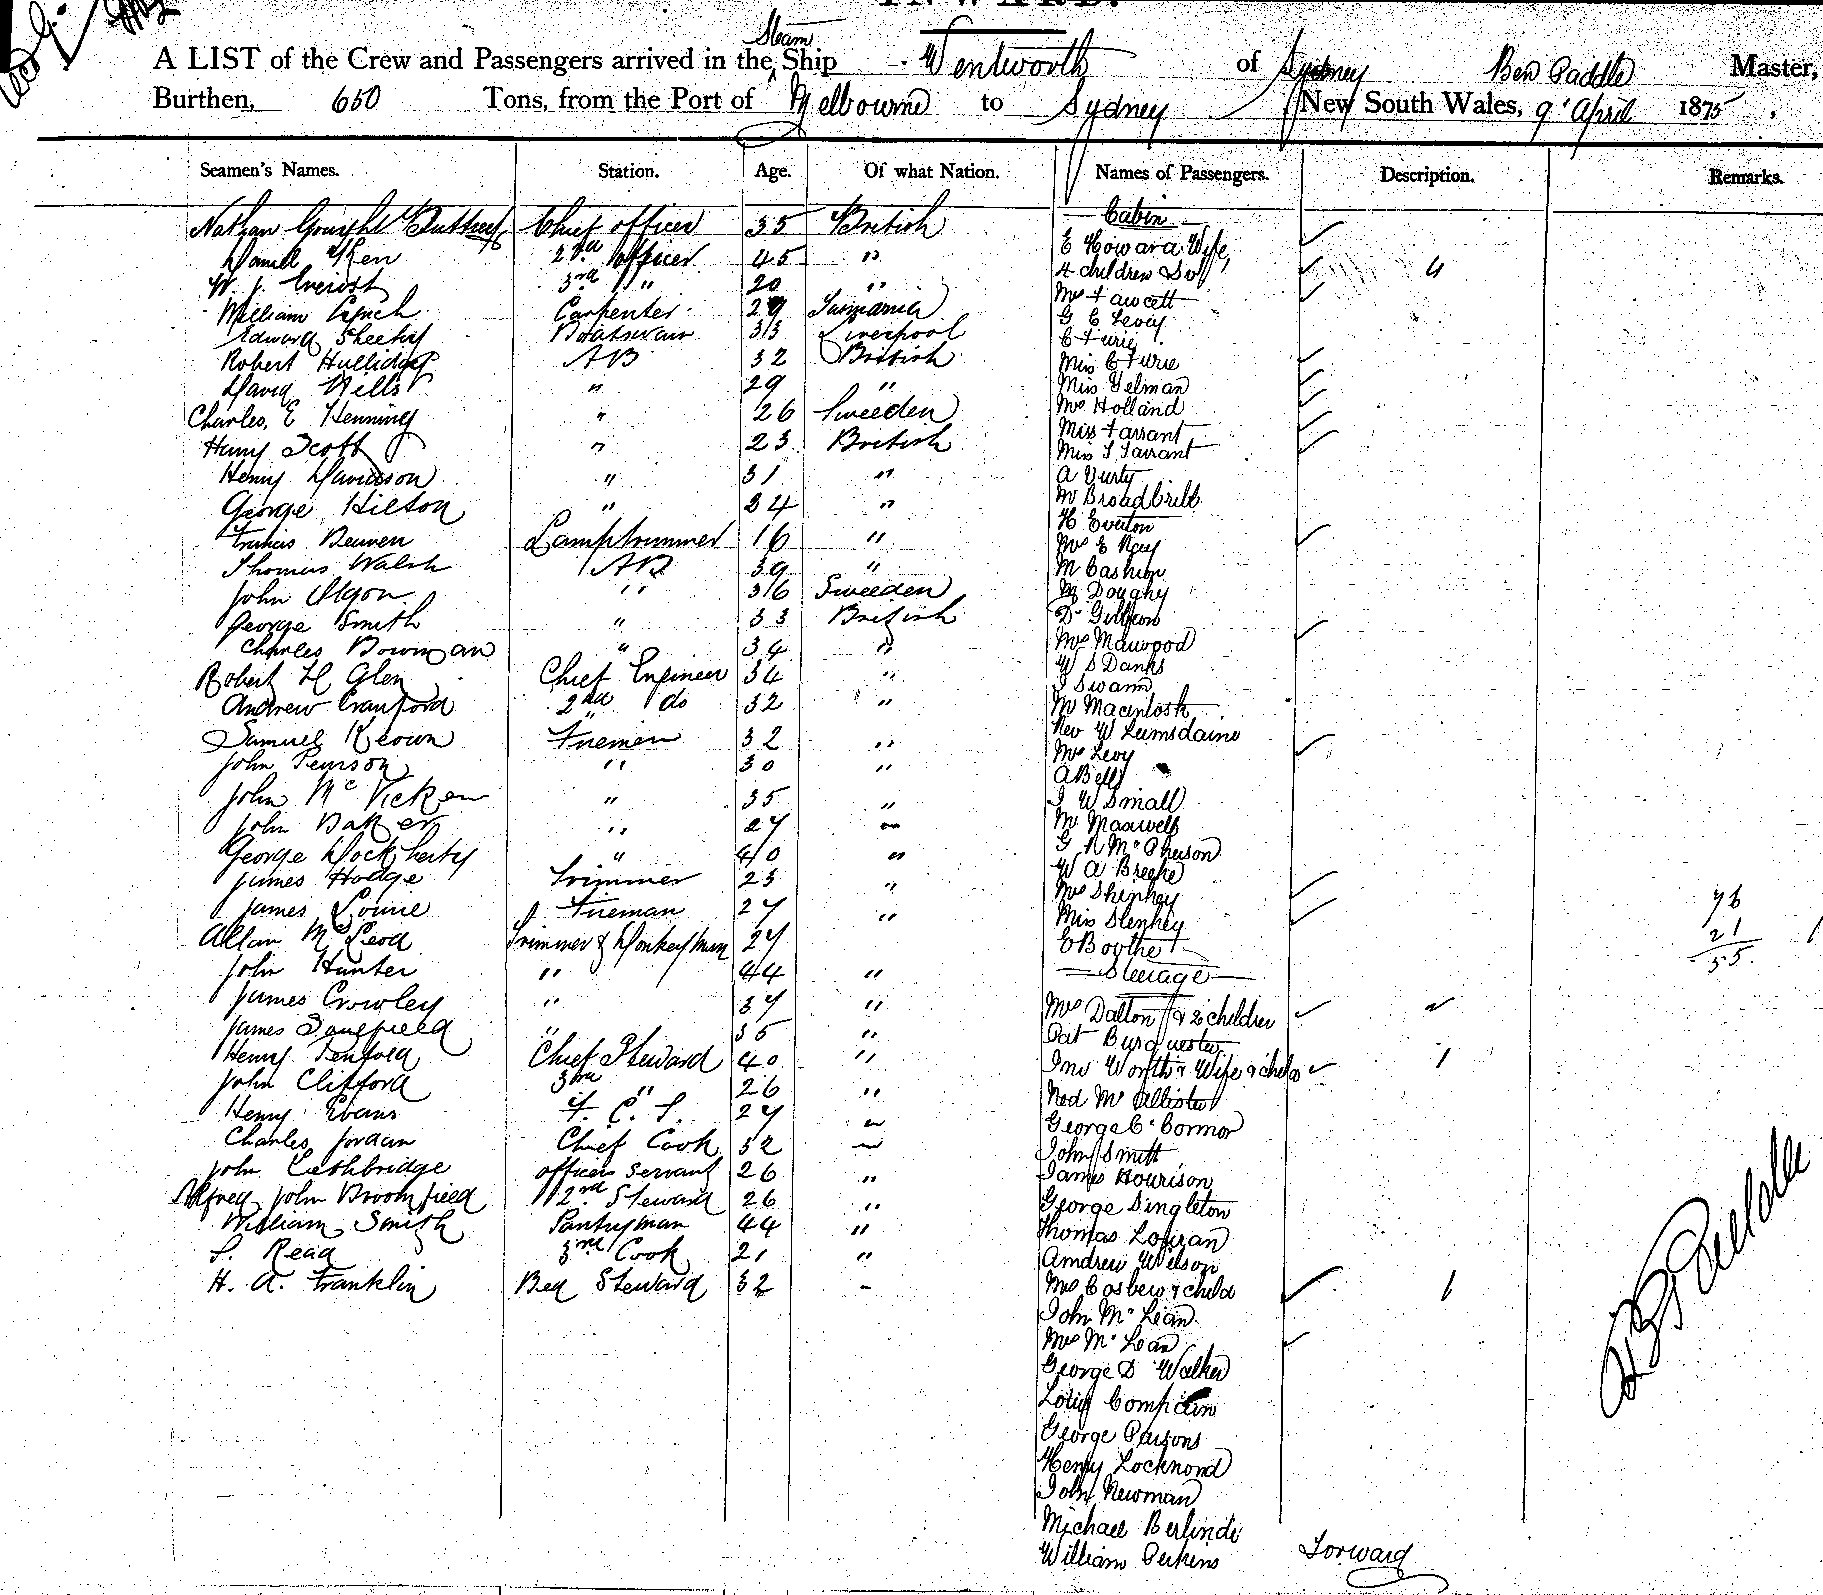 INWARD.
Steam
A LIST of the Crew and Passengers arrived in the Ship Wentworth of Sydney Ben Paddle Master,
Burthen, 650 Tons, from the Port of Melbourne to Sydney New South Wales, 9 April 1875.
Seamen's Names. Station. Age. Of what Nation. Names of Passengers. Description. Remarks.
Cabin
Nathan Chief officer 35 British
2nd officer 45 " E Howard Wife,
3rd " 20 " 4 children 4
William Lynch Carpenter 29 Tasmania Mrs Fawcett
Edward Sheehy Boatswain 33 Liverpool G E Levy
Robert AB 32 British E Furie
Miss E Furie
David Wells " 29 " Miss Gelman
Charles, E Henning " 26 Sweeden Mrs Holland
Henry Scott " 23 British Miss Farrant
Miss Farrant
Henry Davidson " 31 " A
George Hilton " 34 " Mr
H Everton
Francis Lamptrimmer 16 " Mrs E Ray
Thomas Walsh AB 39 " M Cashion
John 36 Sweeden M Doughy
George Smith " 33 British Dr
Charles Bowman " 34 " Mrs Mawood
W S Danks
Robert H Glen Chief Engineer 34 " J Swann
Andrew Cranford 2nd do 32 " Mr Macintosh
Samuel Keown Firemen 32 " Rev W Lumsdaine
Mrs Levy
John Pearson " 30 " A Bell
John McVicken " 35 " J W Small
John Baker " 27 " Mr Maxwell
George Dockherty " 40 " G McPherson
W A
James Hodge Trimmer 23 " Mrs
James Lourie Fireman 27 " Miss 76
Allan McLeod Trimmer & Donkeyman 27 E Boothe 21
55
John Hunter " 44 " Steerage
James Crowley " 37 " Mrs Dalton & 2 children 2
James " 35 " Pat
Henry Tenford Chief Steward 40 " Jno Worth & Wife & child 1
John Clifford 3rd " 26 "
Henry Evans F. C. S. 27 " Ned McAllister
Charles Jordan Chief Cook 32 " George O'Connor
John Smith
John Lethbridge officers servant 26 " James Hourison
Alfred John Broomfield 2nd Steward 26 " George Singleton
William Smith Pantryman 44 " Thomas
S. Read 3rd Cook 21 " Andrew Wilson
H. A. Franklin Bed Steward 32 " Mrs & child 1
John McLean
Mrs McLean
George D Walker
George Parsons
Henry Locknond
John Newman
Michael
William Perkins Forward